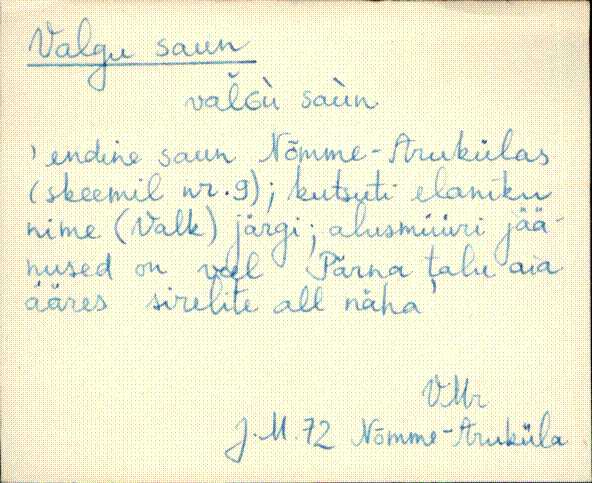 Valgu saun
val̆Gù saùn
'endine saun Nõmme-Arukülas
(skeemil nr. 9); kutsuti elaniku
nime (Valk) järgi; alusmüüri jää-
nused on veel Pärna talu aia
ääres sirelite all näha'
VMr
J.M. 72 Nõmme-Aruküla